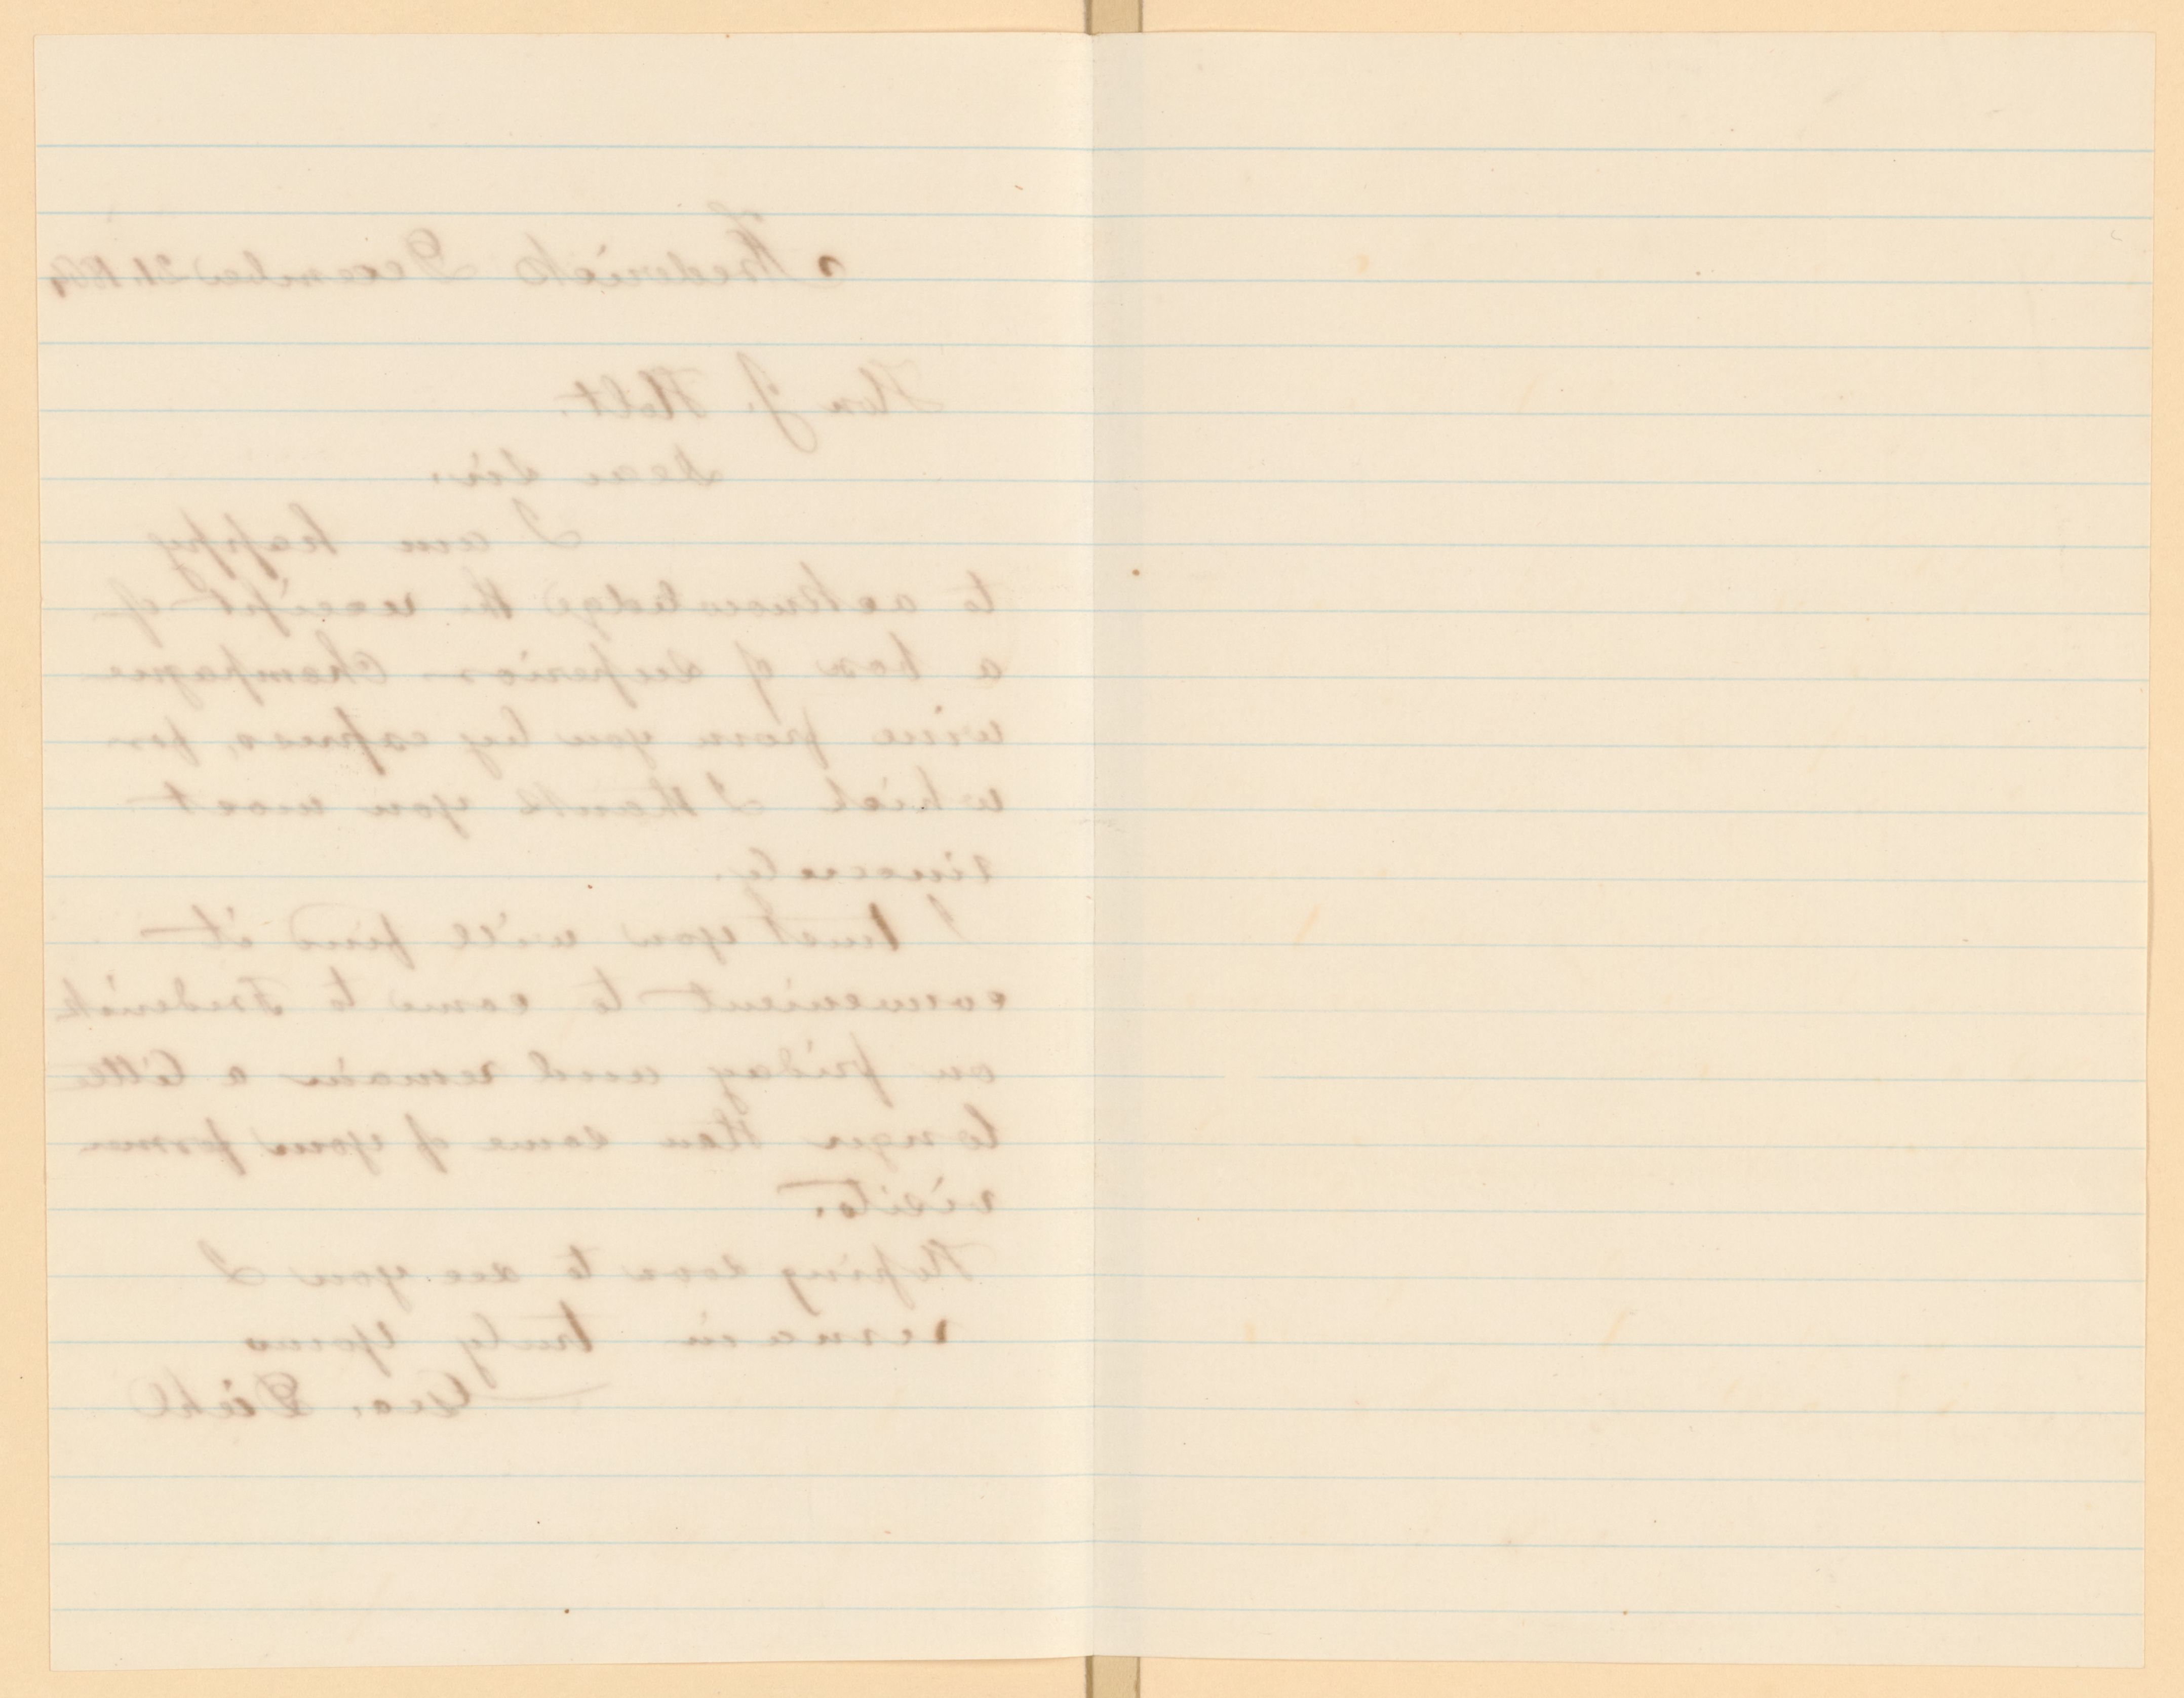 Frederick December 21. 1864
Hon J. Holt.
Dear Sir.
I am happy
to acknowledge the receipt of
a box of superior Champagne
wine from you by express, for
which I thank you most
sincerely.
I trust you will find it
convenient to come to Frederick
on friday and remain a little
longer than some of your former
visits.
Hoping soon to see you I
remain truly yours
Geo. Diehl